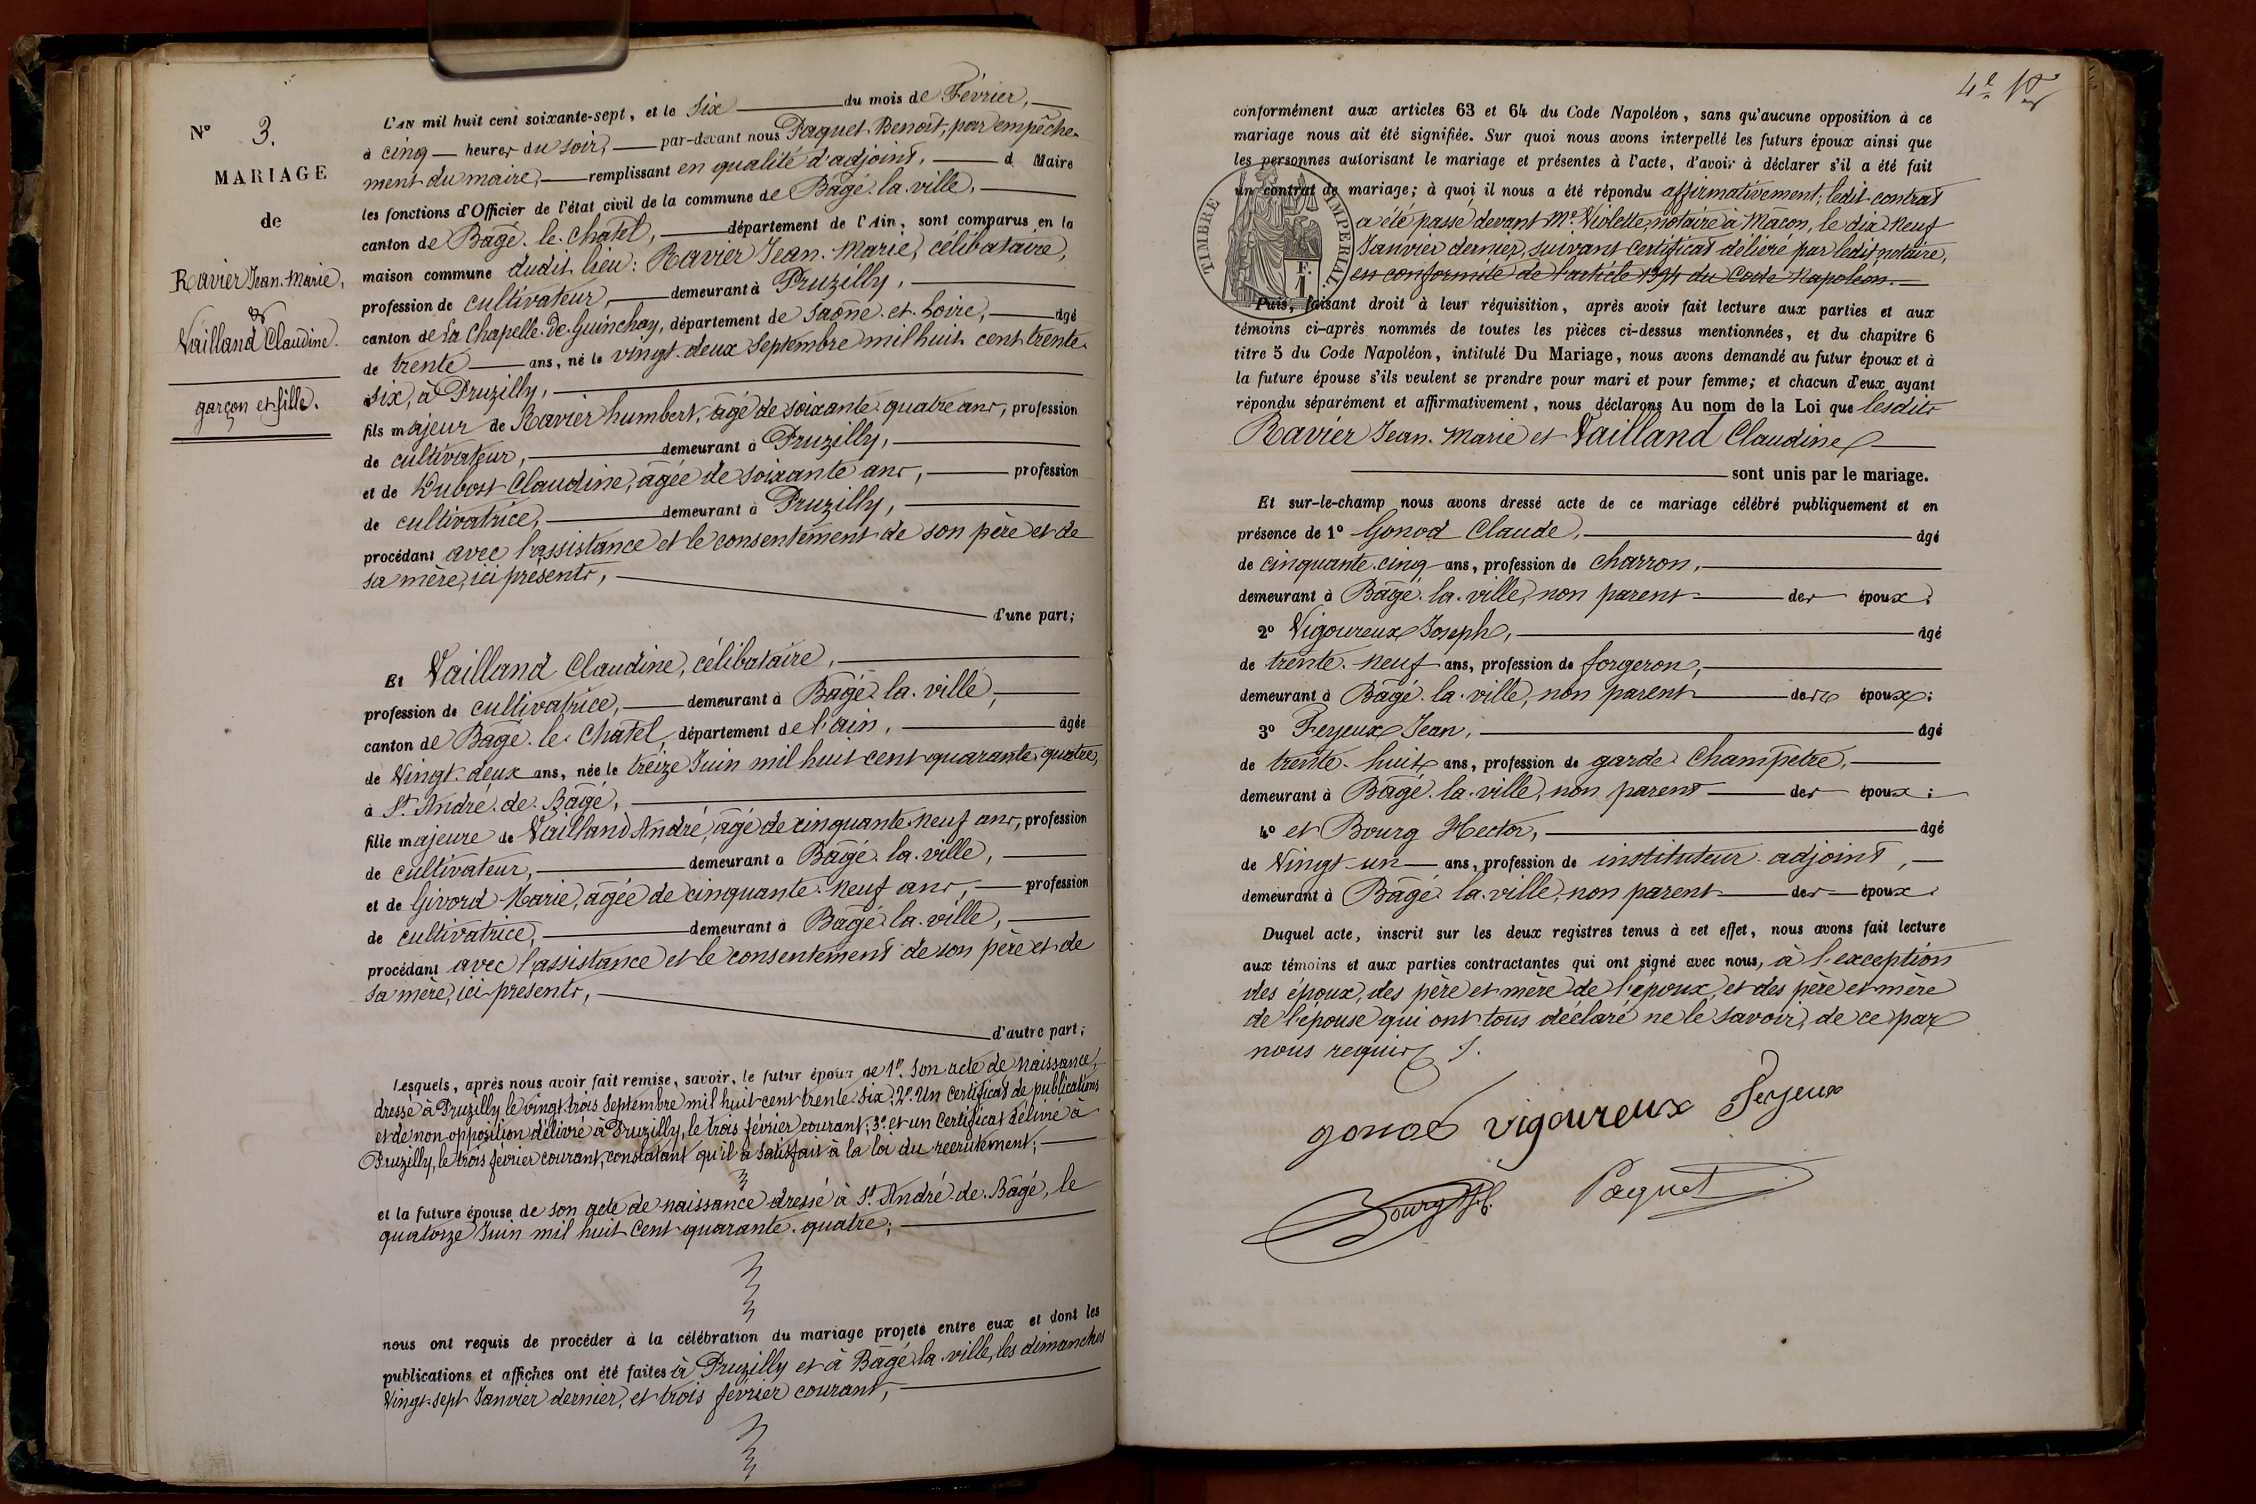 N° 3.
MARIAGE
de
Ravier Jean-Marie,
&
Vailland Claudine.
garçon et fille.
L'AN mil huit cent soixante-sept, et le Six du mois de Février,
à cinq heures du soir, par-devant nous Paquet Benoît, par empêche-
ment du maire, remplissant en qualité d'adjoint, d Maire
les fonctions d'Officier de l'état civil de la commune de Bâgé-la-ville,
canton de Bâgé-le-Chatel, département de l'Ain, sont comparus en la
maison commune dudit lieu: Ravier Jean-Marie, célibataire,
profession de cultivateur, demeurant à Pruzilly,
canton de La Chapelle-de-Guinchay, département de Saône-et-Loire, âgé
de trente ans, né le vingt-deux Septembre mil huit cent trente-
six, à Pruzilly,
fils majeur de Ravier humbert, âgé de soixante-quatre ans, profession
de cultivateur, demeurant à Pruzilly,
et de Dubost Claudine, âgée de soixante ans, profession
de cultivatrice, demeurant à Pruzilly,
procédant avec l'assistance et le consentement de son père et de
sa mère, ici présents,
d'une part;
Et Vailland Claudine, célibataire,
profession de cultivatrice, demeurant à Bâgé-la-ville,
canton de Bâgé-le-Chatel, département de l'ain, âgée
de Vingt-deux ans, née le treize Juin mil huit cent quarante-quatre,
à St André-de-Bâgé,
fille majeure de Vailland André, âgé de cinquante-neuf ans, profession
de cultivateur, demeurant à Bâgé-la-ville,
et de Givord Marie, âgée de cinquante-neuf ans, profession
de cultivatrice, demeurant à Bâgé-la-ville,
procédant avec l'assistance et le consentement de son père et de
sa mère, ici présents,
d'autre part;
Lesquels, après nous avoir fait remise, savoir, le futur époux de 1° Son acte de naissance,
dressé à Pruzilly le vingt-trois Septembre mil huit cent trente-six; 2° Un certificat de publications
et de non opposition délivré à Pruzilly, le trois février courant; 3° et un certificat délivré à
Pruzilly, le trois février courant, constatant qu'il a satisfait à la loi du recrutement;
et la future épouse de son acte de naissance dressé à St André-de-Bâgé, le
quatorze Juin mil huit Cent quarante-quatre;
nous ont requis de procéder à la célébration du mariage projeté entre eux et dont les
publications et affiches ont été faites à Pruzilly et à Bâgé-la-ville, les dimanches
Vingt-sept Janvier dernier, et trois février courant,
conformément aux articles 63 et 64 du Code Napoléon, sans qu'aucune opposition à ce
mariage nous ait été signifiée. Sur quoi nous avons interpellé les futurs époux ainsi que
les personnes autorisant le mariage et présentes à l'acte, d'avoir à déclarer s'il a été fait
un contrat de mariage; à quoi il nous a été répondu affirmativement; ledit contrat
a été passé devant Me Violette, notaire à Mâcon, le dix-neuf
Janvier dernier, suivant certificat délivré par ledit notaire,
en conformité de l'article 1394 du Code Napoléon.
TIMBRE IMPERIAL
F. 1
Puis, faisant droit à leur réquisition, après avoir fait lecture aux parties et aux
témoins ci-après nommés de toutes les pièces ci-dessus mentionnées, et du chapitre 6
titre 5 du Code Napoléon, intitulé Du Mariage, nous avons demandé au futur époux et à
la future épouse s'ils veulent se prendre pour mari et pour femme; et chacun d'eux ayant
répondu séparément et affirmativement, nous déclarons Au nom de la Loi que lesdits
Ravier Jean-Marie et Vailland Claudine
sont unis par le mariage.
Et sur-le-champ nous avons dressé acte de ce mariage célébré publiquement et en
présence de 1° Gonod Claude, âgé
de cinquante-cinq ans, profession de charron,
demeurant à Bâgé-la-ville, non parent des époux;
2° Vigoureux Joseph, âgé
de trente-neuf ans, profession de forgeron,
demeurant à Bâgé-la-ville, non parent des époux;
3° Feyeux Jean, âgé
de trente-huit ans, profession de garde-Champetre,
demeurant à Bâgé-la-ville, non parent des époux;
4° et Bourg Hector, âgé
de Vingt-un ans, profession de instituteur-adjoint,
demeurant à Bâgé-la-ville, non parent des époux.
Duquel acte, inscrit sur les deux registres tenus à cet effet, nous avons fait lecture
aux témoins et aux parties contractantes qui ont signé avec nous, à l'exception
des époux, des père et mère de l'époux, et des père et mère
de l'épouse qui ont tous déclaré ne le savoir, de ce par
nous requis.
gonod vigoureux Feyeux
Bourg H. Paquet